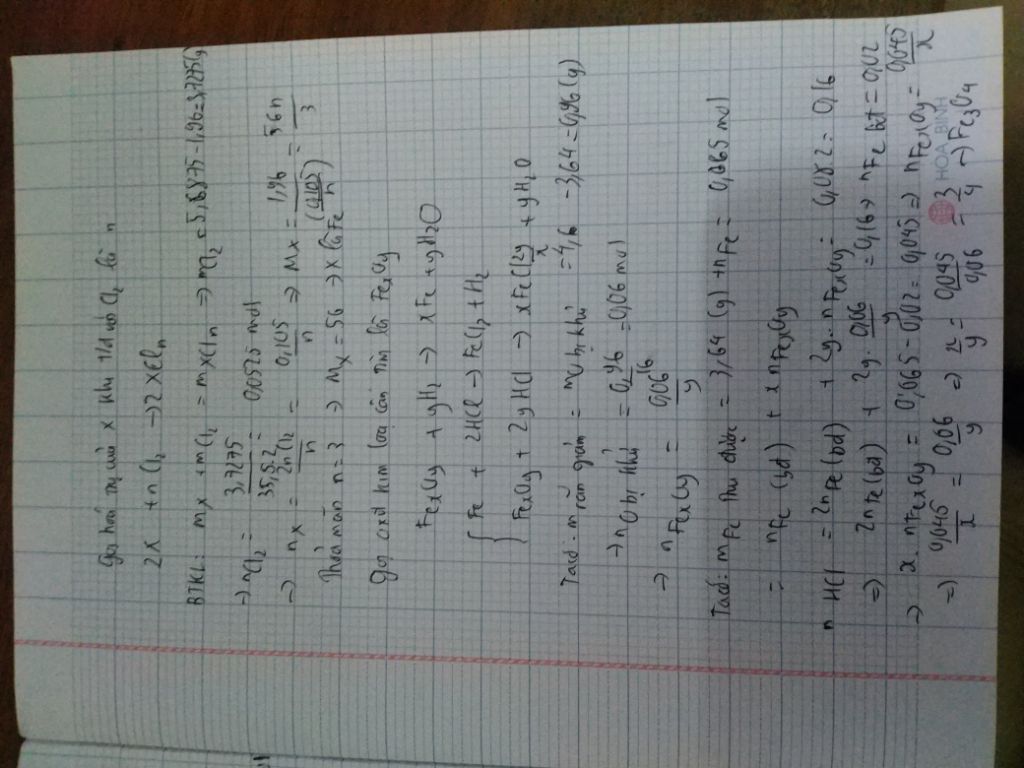 Gọi hoá trị của X khi t/d với Cl2 là n
2X + nCl2 → 2XCln
BTKL: mX + mCl2 = mXCln ⇒ mCl2 = 5,6875 - 1,96 = 3,7275 (g)
→ nCl2 = 3,7275 / 35,5.2 = 0,0525 mol
→ nX = 2nCl2 / n = 0,105 / n ⇒ MX = 1,96 / (0,105 / n) = 56n / 3
Thoả mãn n = 3 → MX = 56 → X là Fe
Gọi oxit kim loại cần tìm là FexOy
FexOy + yH2 → xFe + yH2O
{ Fe + 2HCl → FeCl2 + H2
FexOy + 2yHCl → xFeCl2y/x + yH2O
Ta có: m rắn giảm = mO bị khử = 4,6 - 3,64 = 0,96 (g)
→ nO bị khử = 0,96 / 16 = 0,06 mol
→ nFexOy = 0,06 / y
Ta có: mFe thu được = 3,64 (g) → nFe = 0,065 mol
= nFe (bđ) + x nFexOy
nHCl = 2nFe(bđ) + 2y.nFexOy = 0,08.2 = 0,16
⇒ 2nFe(bđ) + 2y.0,06 / y = 0,16 → nFe bđ = 0,02
→ x.nFexOy = 0,065 - 0,02 = 0,045 ⇒ nFexOy = 0,045 / x
⇒ 0,045 / x = 0,06 / y ⇒ x / y = 0,045 / 0,06 = 3 / 4 → Fe3O4
HOA BINH